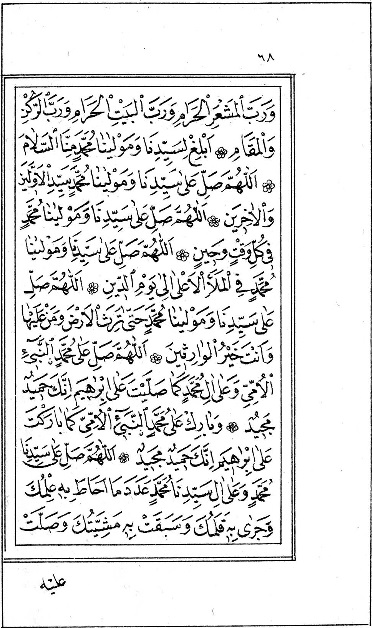 ٦٨
وَرَبَّ الْمَشْعَرِ الْحَرَامِ وَرَبَّ الْبَيْتِ الْحَرَامِ وَرَبَّ الرُّكْنِ
وَالْمَقَامِ ❁ اَبْلِغْ لِسَيِّدِنَا وَمَوْلٰينَا مُحَمَّدٍ مِنَّا السَّلَامَ
❁ اَللّٰهُمَّ صَلِّ عَلٰى سَيِّدِنَا وَمَوْلٰينَا مُحَمَّدٍ سَيِّدِ الْاَوَّلِينَ
وَالْاٰخِرِينَ ❁ اَللّٰهُمَّ صَلِّ عَلٰى سَيِّدِنَا وَمَوْلٰينَا مُحَمَّدٍ
فِى كُلِّ وَقْتٍ وَحِينٍ ❁ اَللّٰهُمَّ صَلِّ عَلٰى سَيِّدِنَا وَمَوْلٰينَا
مُحَمَّدٍ فِى الْمَلَاِ الْاَعْلٰى اِلٰى يَوْمِ الدِّينِ ❁ اَللّٰهُمَّ صَلِّ
عَلٰى سَيِّدِنَا وَمَوْلٰينَا مُحَمَّدٍ حَتّٰى تَرِثَ الْاَرْضَ وَمَنْ عَلَيْهَا
وَاَنْتَ خَيْرُ الْوَارِثِينَ ❁ اَللّٰهُمَّ صَلِّ عَلٰى مُحَمَّدٍ النَّبِىِّ
الْاُمِّىِّ وَعَلٰى اٰلِ مُحَمَّدٍ كَمَا صَلَّيْتَ عَلٰى اِبْرٰهِيمَ اِنَّكَ حَمِيدٌ
مَجِيدٌ ❁ وَبَارِكْ عَلٰى مُحَمَّدٍ النَّبِىِّ الْاُمِّىِّ كَمَا بَارَكْتَ
عَلٰى اِبْرٰهِيمَ اِنَّكَ حَمِيدٌ مَجِيدٌ ❁ اَللّٰهُمَّ صَلِّ عَلٰى سَيِّدِنَا
مُحَمَّدٍ وَعَلٰى اٰلِ سَيِّدِنَا مُحَمَّدٍ عَدَدَ مَا اَحَاطَ بِهِ عِلْمُكَ
وَجَرٰى بِهِ قَلَمُكَ وَسَبَقَتْ بِهِ مَشِيَّتُكَ وَصَلَّتْ
عَلَيْهِ